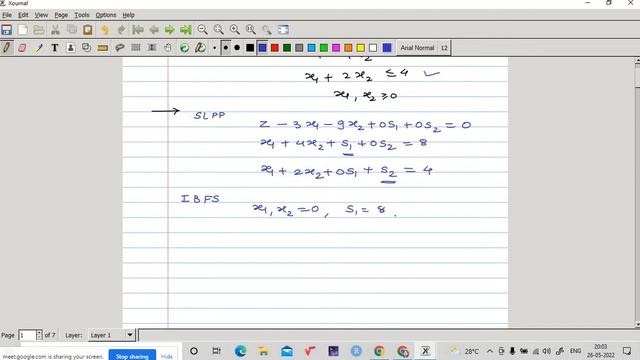 Xournal
File Edit View Page Tools Options Help
Arial Normal 12
x₁ + 2x₂ ≤ 4 ✓
x₁, x₂ ≥ 0
→ SLPP
Z - 3x₁ - 9x₂ + 0S₁ + 0S₂ = 0
x₁ + 4x₂ + S₁ + 0S₂ = 8
x₁ + 2x₂ + 0S₁ + S₂ = 4
IBFS
x₁, x₂ = 0, S₁ = 8.
Page 1 of 7 Layer: Layer 1
meet.google.com is sharing your screen. Stop sharing Hide
28°C ENG 20:03
26-05-2022